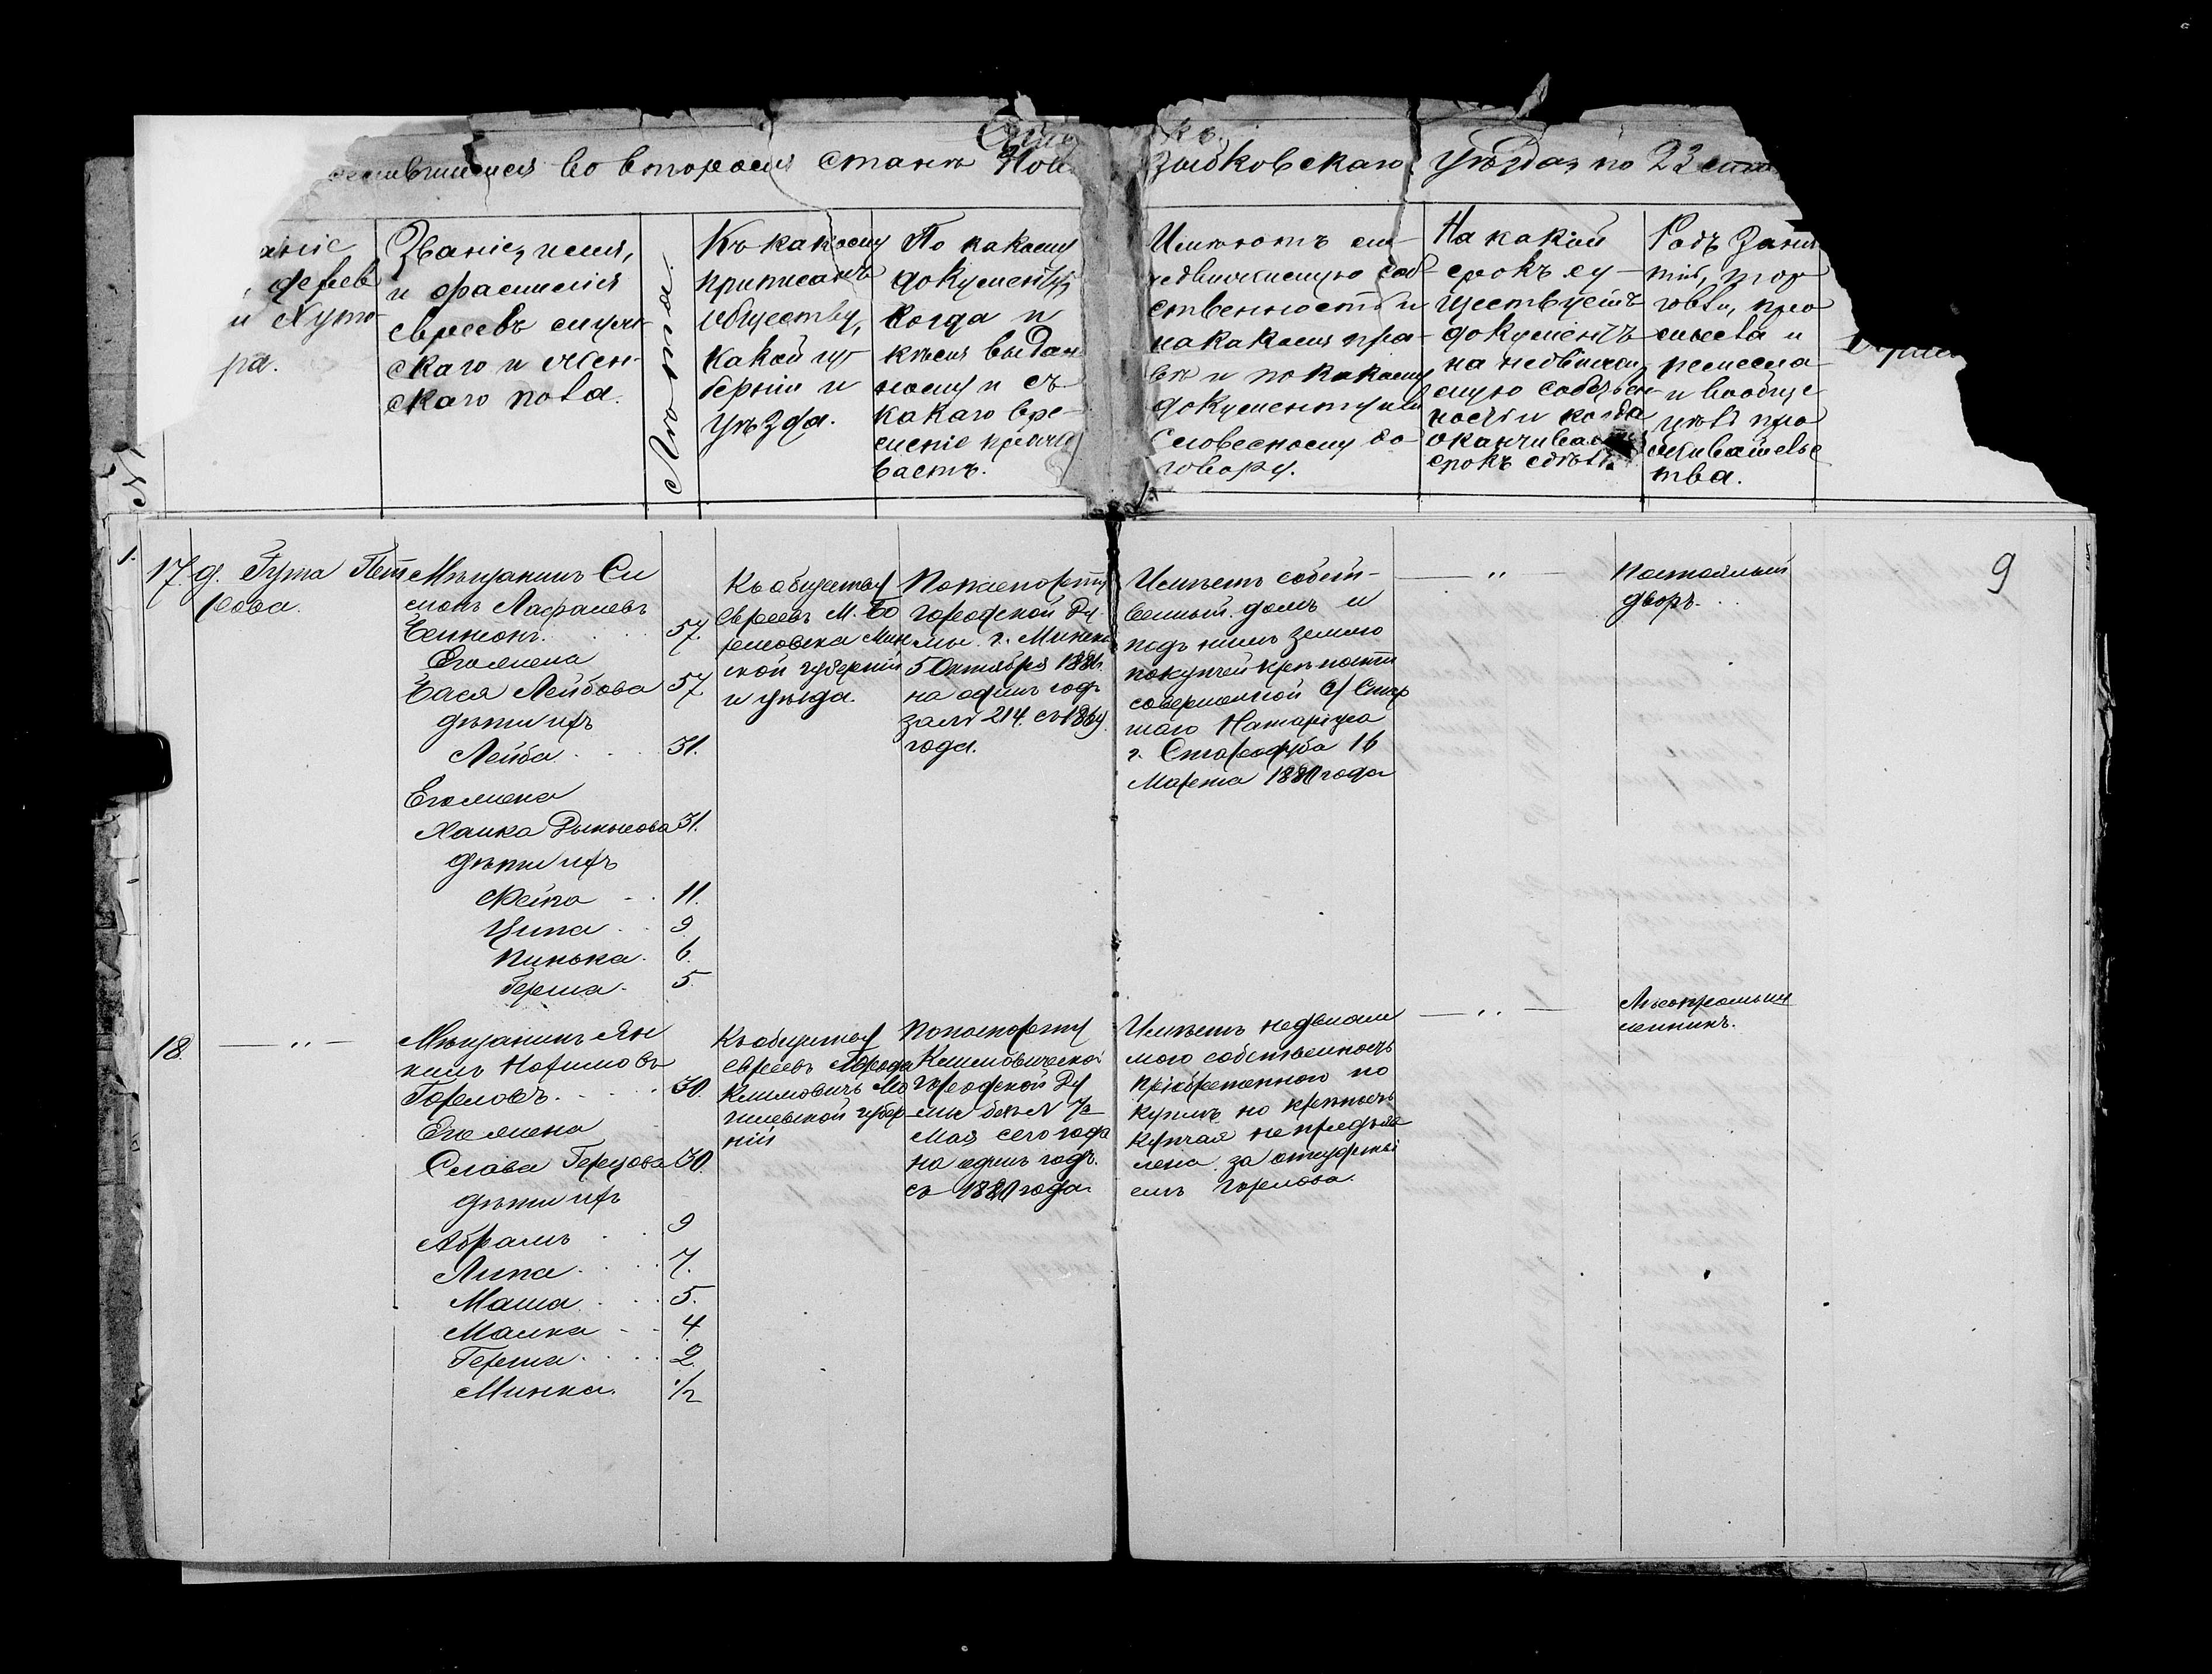 Спи
къ
во второмъ станѣ Ново
зыбковскаго уѣзда, по 23
аніе
дерев
и Хуто-
ра.
Званіе, имя,
и фамилія
евреевъ мужс-
скаго и жен-
скаго пола.
Лѣта.
Къ какому
приписанъ
обществу,
какой гу-
берніи и
уѣзда.
По какому
документу,
когда и
кѣмъ выдан-
ному и съ
какого вре-
мени прожи
ваетъ.
Имѣютъ ли
недвижимую соб-
ственность и
на какомъ пра-
вѣ и по какому
документу или
словесному до-
говору.
На какой
срокъ су-
ществуетъ
документъ
на недвижи
мую собствен-
ность и когда
оканчивается
срокъ
Родъ заня
тій, тор
говли, про
мысла и
ремесла
и вообще
цѣль про
живательс
тва.
1.
9
17
д. Гута Пет
рова.
Мѣщанинъ Си
монъ
57.
Его жена
Бася Лейбова 57
дѣти ихъ
Лейба 31.
Его жена
Ханка 31.
дѣти ихъ
Фейга 11.
Ципа 9
Пинька. 6.
Герша. 5.
Къ обществу
евреевъ М.
Мин
ской губерніи
и уѣзда.
По паспорту
городской Ду
мы г. Минска
5 Октября 1886.
на одинъ годъ
за № 214. съ 1869
года.
Имѣетъ собст-
венный домъ и
подъ нимъ землю
по купчей крѣпости
совершенной у Стар
шаго Нотаріуса
г. Стародуба 16
Марта 1880 года
— " —
Постоялый
дворъ.
18
— " —
Мѣщанинъ Ян
кель
Гореловъ. 30.
Его жена
Слава Герцова 30.
дѣти ихъ
Абрамъ 9
Липа 7.
Маша 5.
Малка 4.
Герша 2.
Минка. 1/2
Къ обществу
евреевъ Города
Климовичъ Мо
гилевской губер
ніи
По паспорту
Климовической
городской Ду
мы безъ №
Мая сего года
на одинъ годъ.
съ 1880 года
Имѣетъ недвижи
мою собственность
пріобретенною по
купкѣ но крѣпость
купчая не предъяв
лена за отсутстві
емъ Горелова.
— " —
Лѣсопромыш
ленникъ.